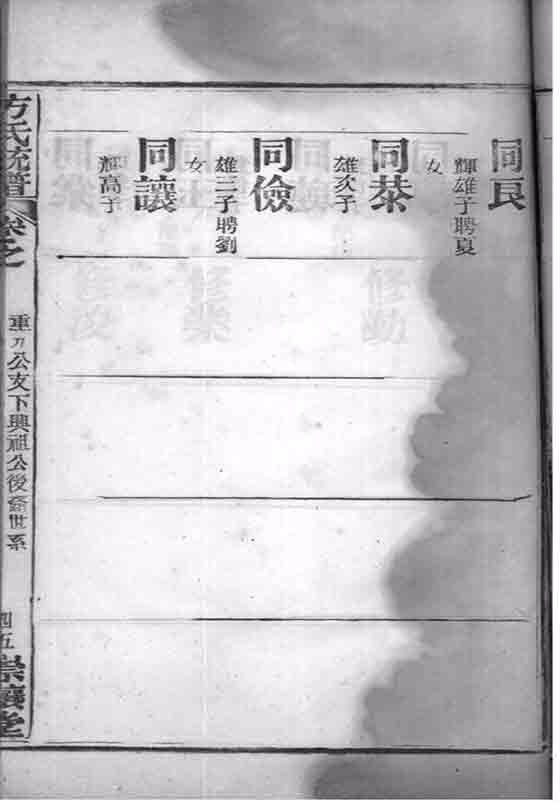 同良
輝雄子聘夏
女
同恭
雄次子
同儉
雄三子聘劉
女
同讓
輝高子
方氏統譜
卷之
重九公支下興祖公後裔世系
四五
崇讓堂